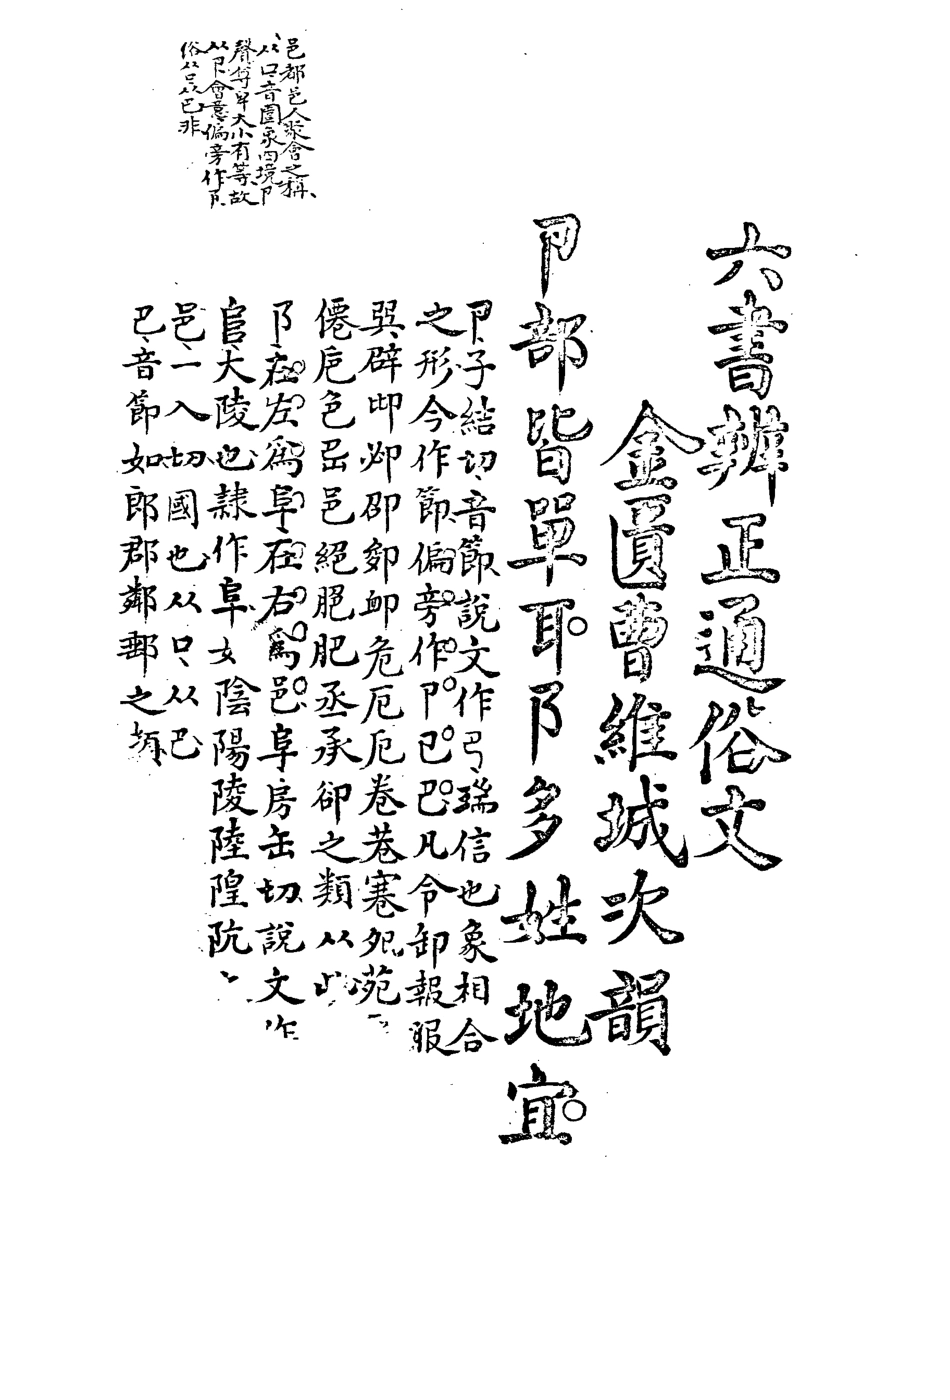 六書辨正通俗文
金匱曹維城次韻
卩部皆單耳。阝多姓地宜。
卩、子結切、音節、說文作㔾、瑞信也、象相合
之形、今作節、偏旁作卩㔾巴、凡令卸報服
巽、辟卯卲卻卹危厄卷巷寋夗苑
僊巵色邑絕肥丞承卻之類从
阝、在左爲阜、在右爲邑、阜房缶切、說文作
𨸏、大陵也、隷作阜、如陰陽陵陸隍阬
邑、一入切、國也、从口、从巴
㔾、音節、如郎郡鄰郵之類
邑、都邑人聚會之稱、
从口、音圍、象四境、卩
聲、尊卑大小有等、故
从卩會意、偏旁作阝、
俗从口从巴、非